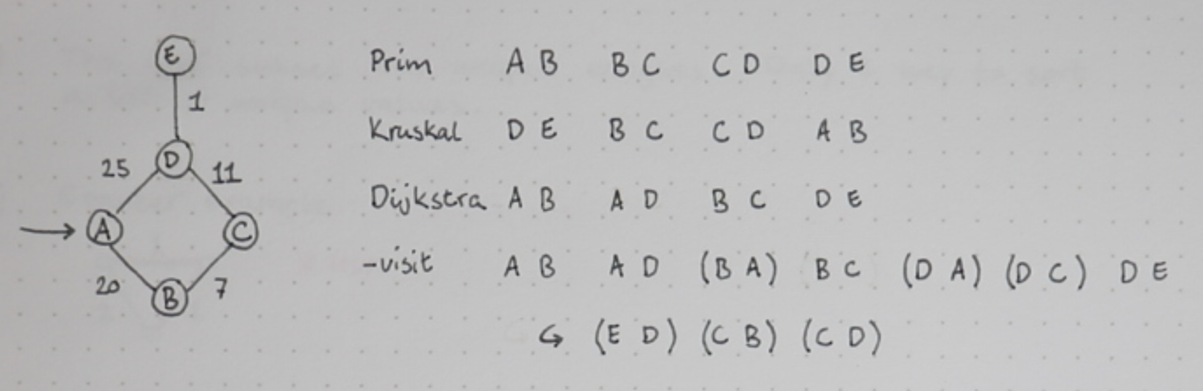 E
1
D
25 11
A C
20 7
B
Prim A B B C C D D E
Kruskal D E B C C D A B
Dijkstra A B A D B C D E
-visit A B A D (B A) B C (D A) (D C) D E
↳ (E D) (C B) (C D)